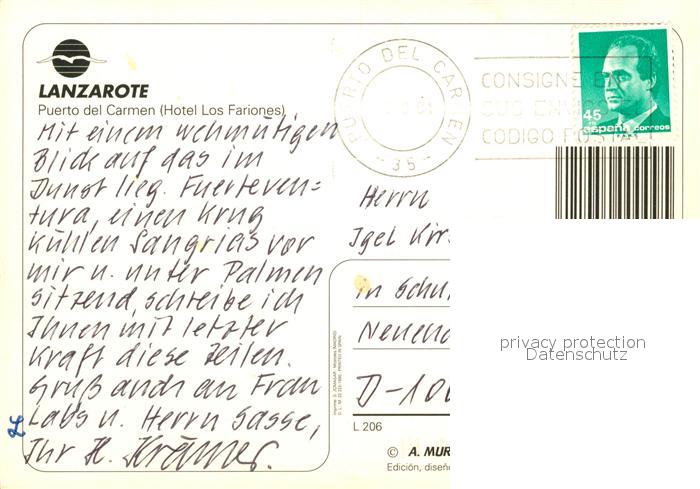 LANZAROTE
Puerto del Carmen (Hotel Los Fariones)
Mit einem wehmütigen
Blick auf das im
Dunst lieg. Fuerteven=
tura, einen Krug
kühlen Sangrias vor
mir u. unter Palmen
sitzend, schreibe ich
Ihnen mit letzter
Kraft diese Zeilen.
Gruß auch an Frau
Labs u. Herrn Sasse,
Ihr H. Krämer.
PUERTO DEL CARMEN
- 35 -
CONSIGNE EN
SUS ENVIOS
CODIGO POSTAL
45
españa correos
Herrn
Igel Kir
in Schu
Neuend
D-100
L 206
© A. MUR
Edición, diseñ
privacy protection
Datenschutz